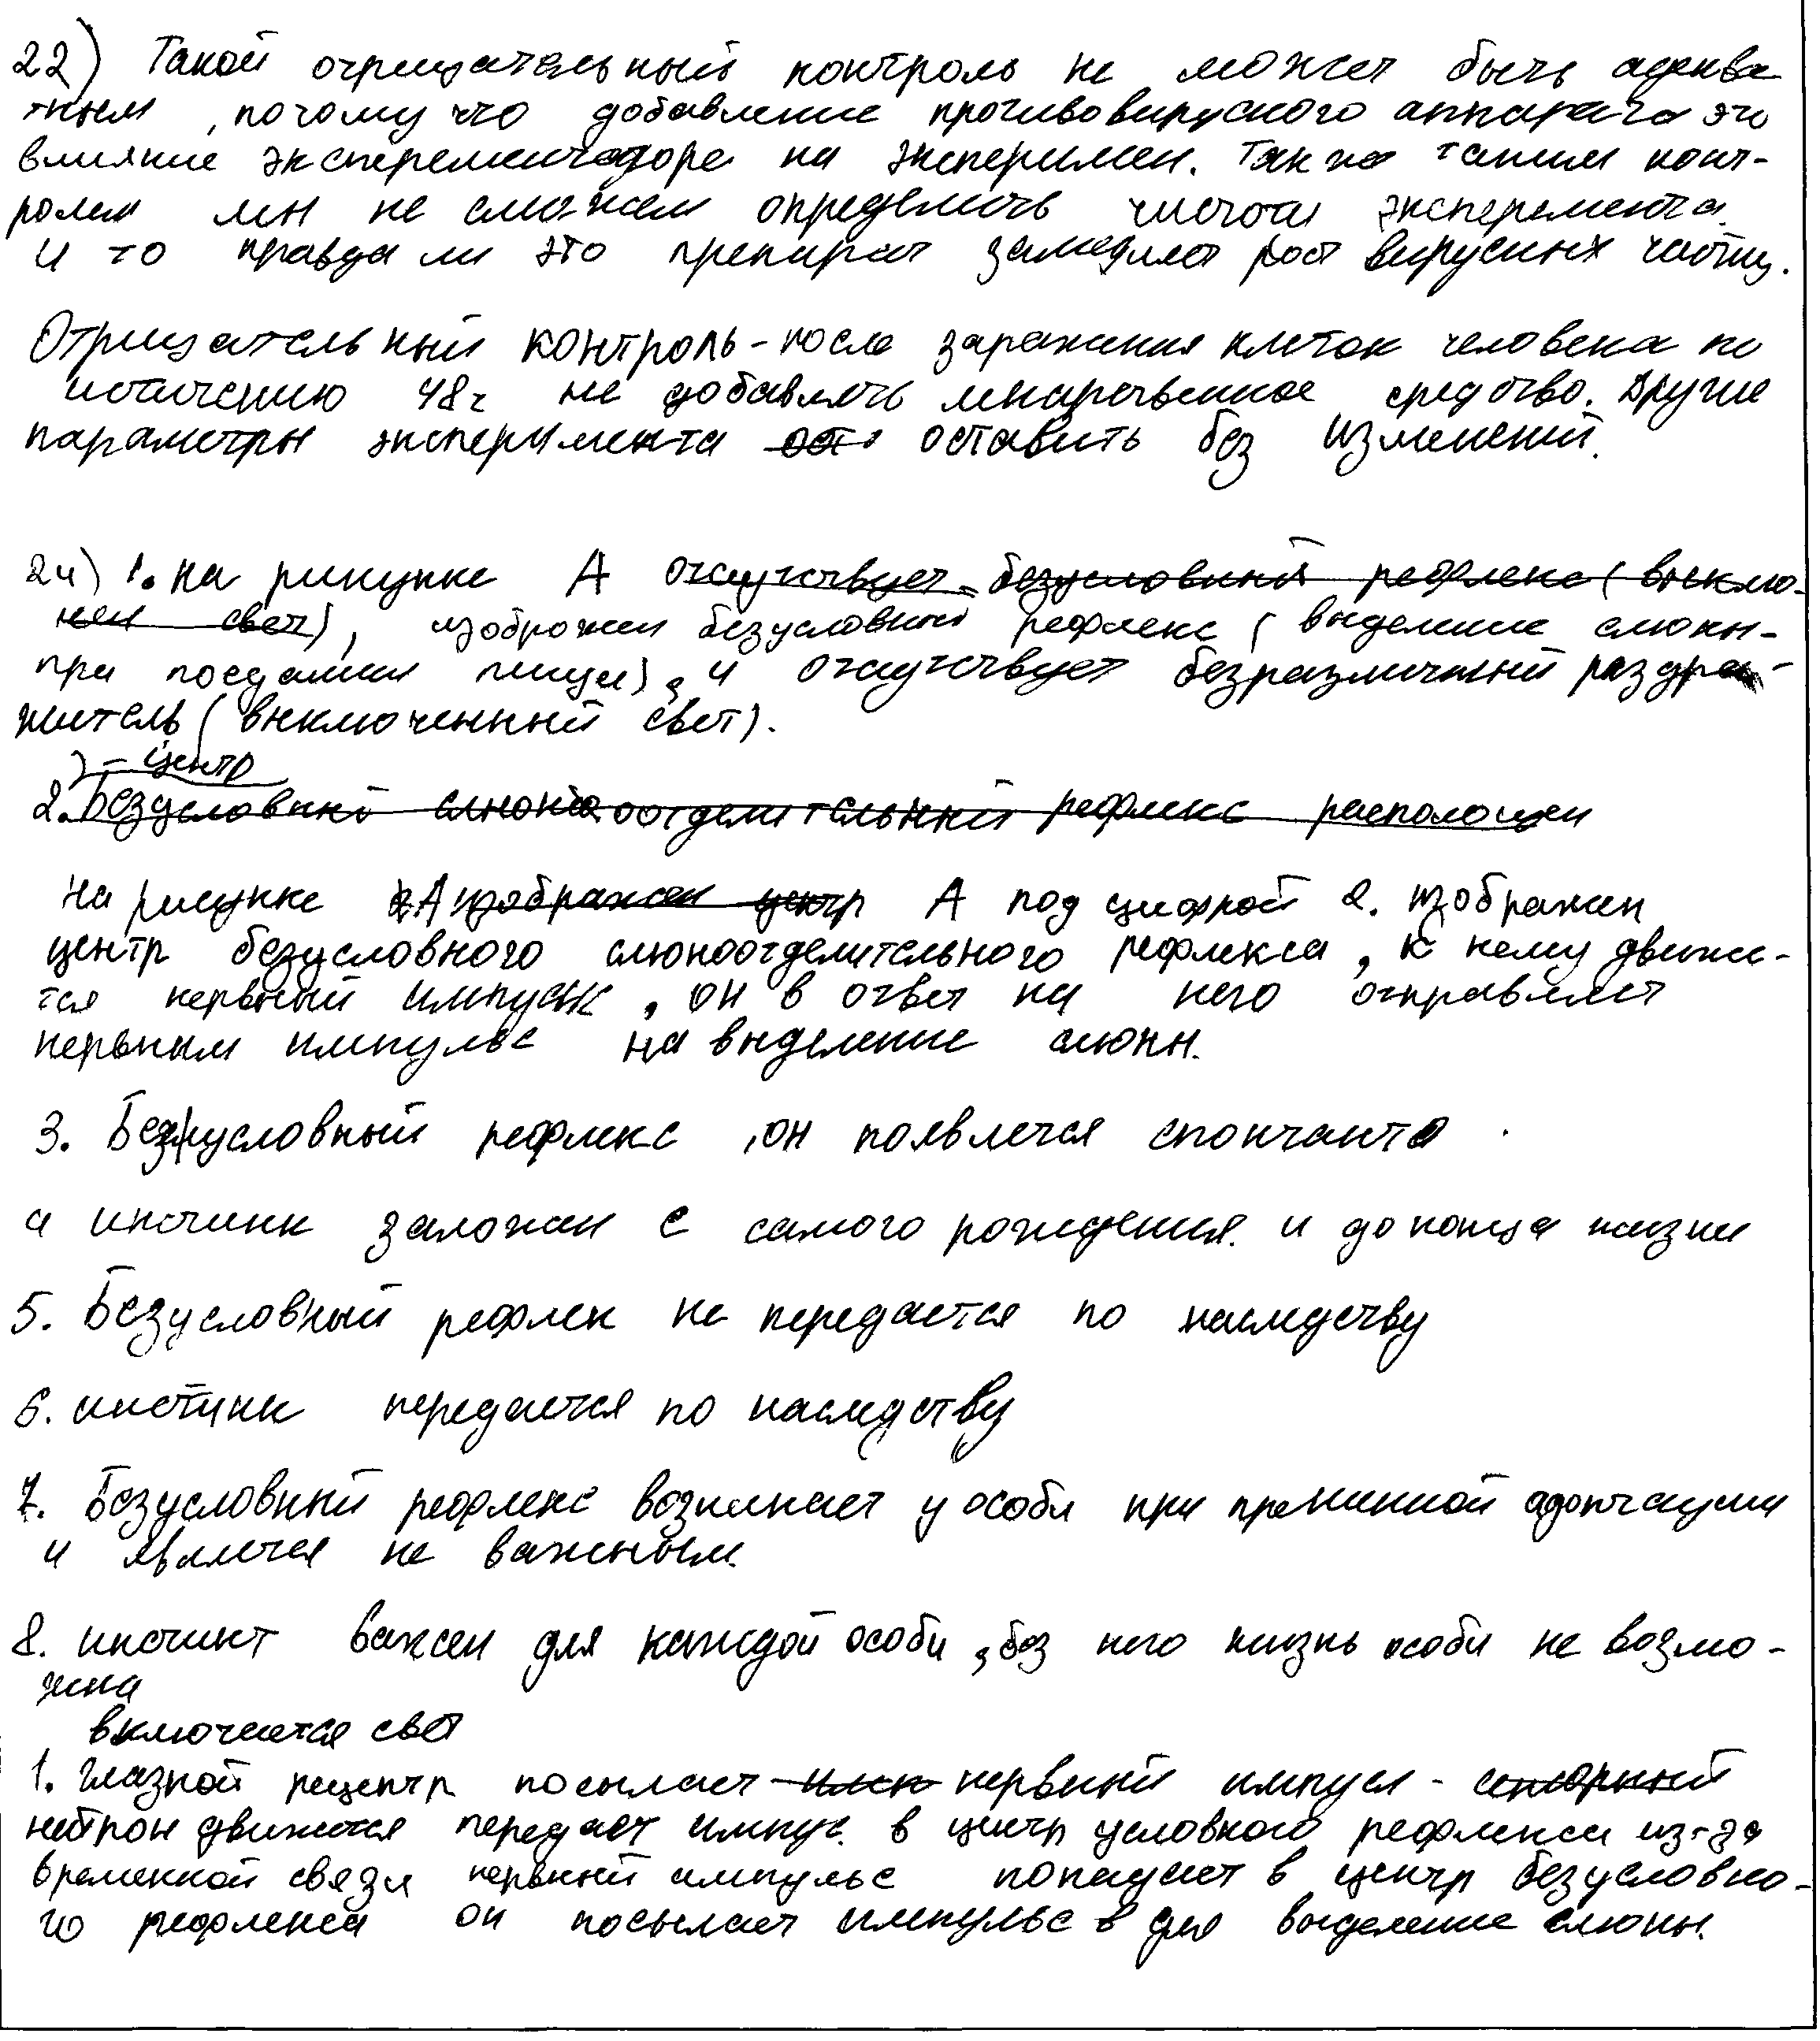 22) Такой отрицательный контроль не может быть адеква
тным, потому что добавление противовирусного аппарата это
влияние эксперементадора на эксперимен. Так же таким конт-
ролем мы не сможем определить чистоты эксперемента
и то правда ли это препарат замедляет рост вирусных частиц.
Отрицательный контроль - после заражения клеток человека по
истичению 48ч не добавлять лекарственное средство. Другие
параметры эксперимента ост оставить без изменений.
24) 1. на рисунке А отсутствует безусловный рефлекс (выклю-
чен свет), изображен безусловный рефлекс (выделение слюны-
при поедании пищи), и отсутствует безразличный раздра-
житель (выключенный свет).
2 - центр
2. Безусловный слюноотделительный рефлекс расположен
На рисунке 2А изображен центр А под цифрой 2. изображен
центр безусловного слюноотделительного рефлекса, к нему движе-
тся нервный импульс, он в ответ на него отправляет
нервным импульс на выделение слюны.
3. Безусловный рефлекс, он появлется спонтанто
а инстинк заложан с самого рождения. и до конца жизни
5. Безусловный рефлек не передается по наследству
6. инстинк передается по наследству
7. Безусловный рефлекс возникает у особи при адоптации
и является не важным.
8. инстинкт важен для каждой особи, без него жизнь особи не возмо-
жна
включается свет
1. Глазной рецептр посылает нервный импусл - сенсорный
нейрон движется передает импус. в центр условного рефлекса из-за
временной связи нервный импульс попадает в центр безусловно-
го рефлекса он посылает импульс в для выделение слюны.